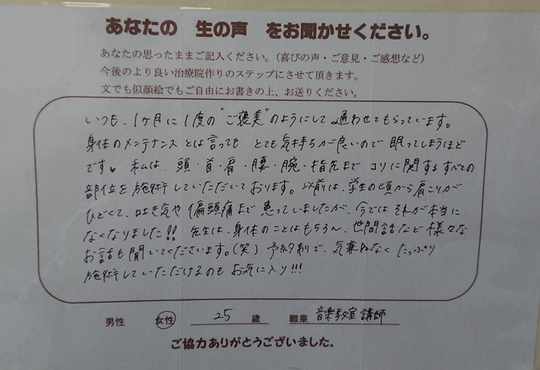 あなたの 生の声 をお聞かせください。
あなたの思ったままご記入ください。(喜びの声・ご意見・ご感想など)
今後のより良い治療院作りのステップにさせて頂きます。
文でも似顔絵でもご自由にお書きの上、お送りください。
いつも、1ヶ月に1度の"ご褒美"のようにして通わせてもらっています。
身体のメンテナンスとは言っても とても気持ちが良いので眠ってしまうほど
です♥ 私は、頭・首・肩・腰・腕・指先まで コリに関するすべての
部位を施術していただいております。以前は、学生の頃から肩こりが
ひどくて、吐き気や偏頭痛まで患っていましたが、今ではそれが本当に
なくなりました!! 先生は、身体のことはもちろん、世間話など様々な
お話も聞いてくださいます。(笑) 予約制で、気兼ねなく たっぷり
施術していただけるのもお気に入り!!!
男性 女性 25 歳 職業 音楽教室講師
ご協力ありがとうございました。